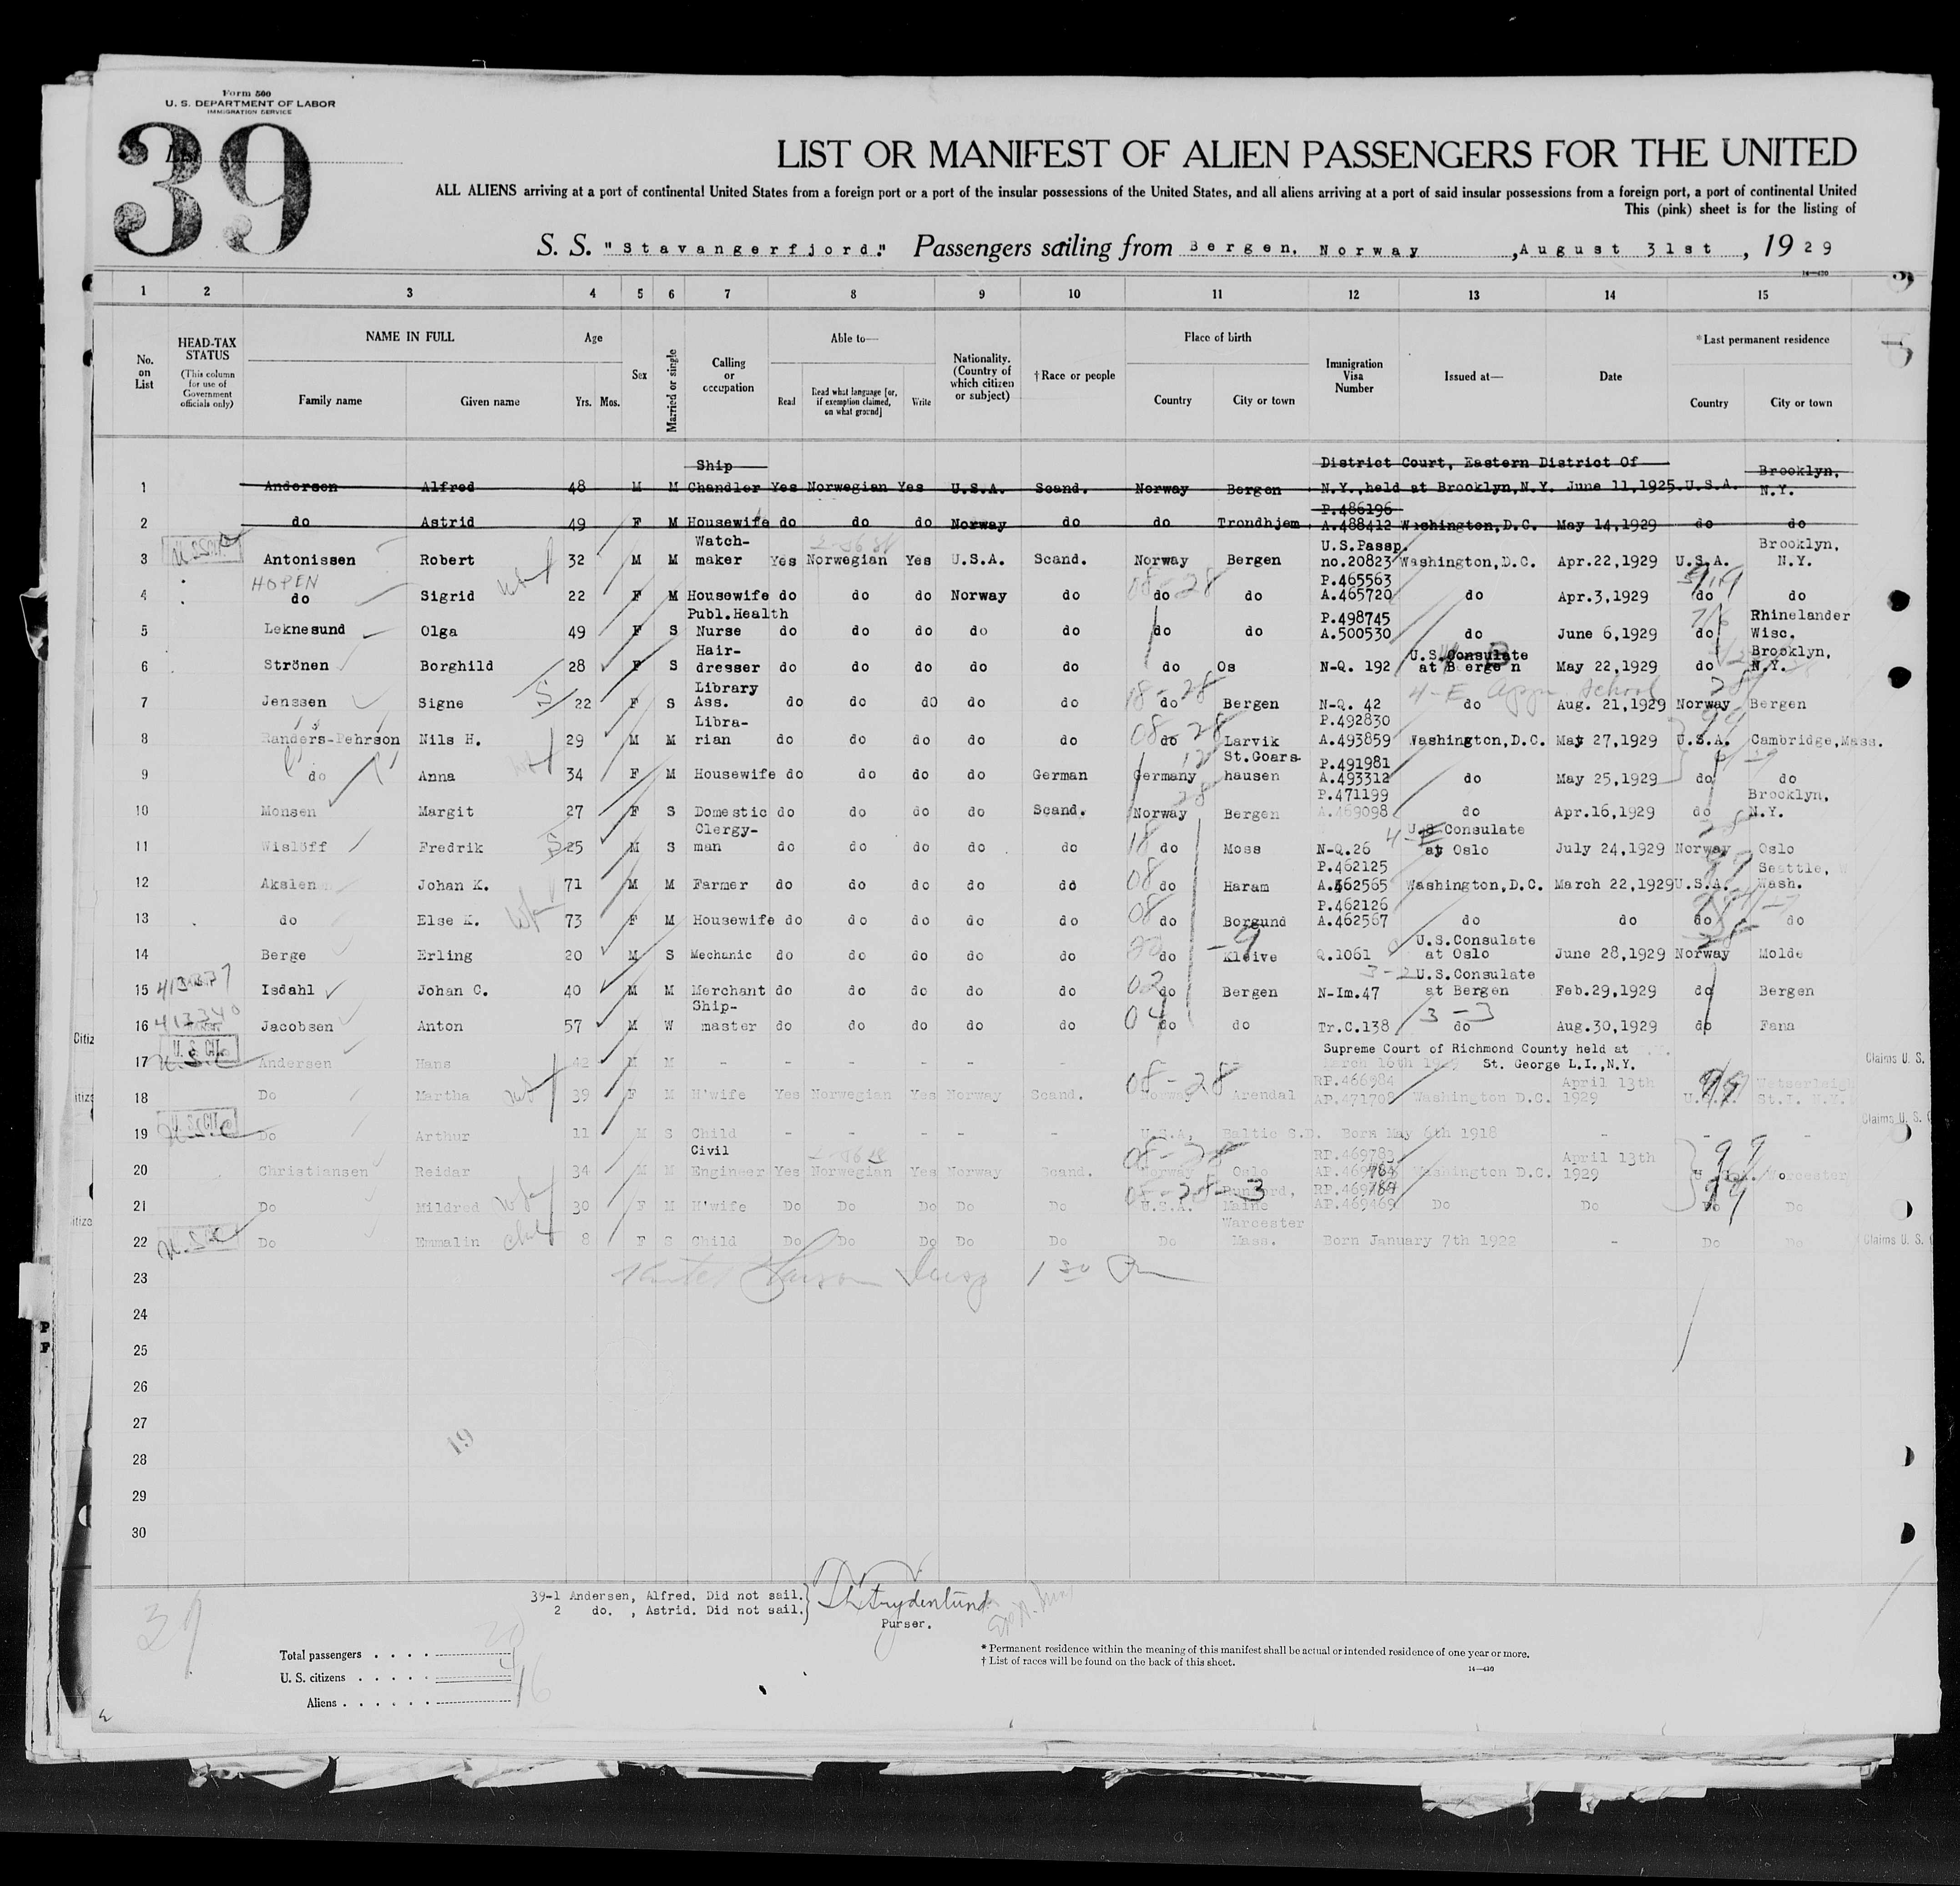 Form 500
U. S. DEPARTMENT OF LABOR
IMMIGRATION SERVICE
39
List
LIST OR MANIFEST OF ALIEN PASSENGERS FOR THE UNITED
ALL ALIENS arriving at a port of continental United States from a foreign port or a port of the insular possessions of the United States, and all aliens arriving at a port of said insular possessions from a foreign port, a port of continental United
This (pink) sheet is for the listing of
S. S. "Stavangerfjord." Passengers sailing from Bergen, Norway, August 31st, 1929
14—430
1 2 3 4 5 6 7 8 9 10 11 12 13 14 15
No. on List
HEAD-TAX STATUS (This column for use of Government officials only)
NAME IN FULL Family name Given name
Age Yrs. Mos.
Sex
Married or single
Calling or occupation
Able to— Read Read what language [or, if exemption claimed, on what ground] Write
Nationality. (Country of which citizen or subject)
† Race or people
Place of birth Country City or town
Immigration Visa Number
Issued at—
Date
* Last permanent residence Country City or town
1 Andersen Alfred 48 M M Ship Chandler Yes Norwegian Yes U.S.A. Scand. Norway Bergen District Court, Eastern District Of N.Y., held at Brooklyn, N.Y. June 11, 1925. U.S.A. Brooklyn, N.Y.
2 do Astrid 49 F M Housewife do do do Norway do do Trondhjem P.486196 A.488412 Washington, D.C. May 14, 1929 do do
3 Antonissen Robert 32 M M Watch-maker Yes Norwegian Yes U.S.A. Scand. Norway Bergen U.S.Passp. no.20823 Washington, D.C. Apr.22,1929 U.S.A. Brooklyn, N.Y.
HOPEN
4 do Sigrid 22 F M Housewife do do do Norway do do do P.465563 A.465720 do Apr.3,1929 do do
5 Leknesund Olga 49 F S Publ.Health Nurse do do do do do do do P.498745 A.500530 do June 6,1929 do Rhinelander Wisc.
6 Strönen Borghild 28 F S Hair-dresser do do do do do do Os N-Q. 192 U.S.Consulate at Bergen May 22,1929 do Brooklyn, N.Y.
7 Jenssen Signe 22 F S Library Ass. do do do do do do Bergen N-Q. 42 do Aug. 21,1929 Norway Bergen
8 Randers-Pehrson Nils H. 29 M M Libra-rian do do do do do do Larvik P.492830 A.493859 Washington, D.C. May 27,1929 U.S.A. Cambridge, Mass.
9 do Anna 34 F M Housewife do do do do German Germany St.Goars-hausen P.491981 A.493312 do May 25,1929 do do
10 Monsen Margit 27 F S Domestic do do do do Scand. Norway Bergen P.471199 A.469098 do Apr.16,1929 do Brooklyn, N.Y.
11 Wislöff Fredrik 25 M S Clergy-man do do do do do do Moss N-Q.26 U.S.Consulate at Oslo July 24,1929 Norway Oslo
12 Akslen Johan K. 71 M M Farmer do do do do do do Haram P.462125 A.462565 Washington, D.C. March 22,1929 U.S.A. Seattle, Wash.
13 do Else K. 73 F M Housewife do do do do do do Borgund P.462126 A.462567 do do do do
14 Berge Erling 20 M S Mechanic do do do do do do Kleive Q.1061 U.S.Consulate at Oslo June 28,1929 Norway Molde
15 Isdahl Johan C. 40 M M Merchant do do do do do do Bergen N-Im.47 U.S.Consulate at Bergen Feb.29,1929 do Bergen
16 Jacobsen Anton 57 M W Ship-master do do do do do do do Tr.C.138 do Aug.30,1929 do Fana
17 U. S. CIT. Andersen Hans 42 M M - - - - - - - Supreme Court of Richmond County held at St. George L.I.,N.Y. Claims U. S.
18 Do Martha 39 F M H'wife Yes Norwegian Yes Norway Scand. Norway Arendal RP.466984 AP.471708 Washington D.C. April 13th 1929 U.S.A. St.I. N.Y.
19 U. S. CIT. Do Arthur 11 M S Child - - - - - U.S.A. Baltic S.D. Born May 6th 1918 - - - Claims U. S.
20 Christiansen Reidar 34 M M Civil Engineer Yes Norwegian Yes Norway Scand. Norway Oslo RP.469783 Washington D.C. April 13th 1929 Worcester
21 Do Mildred 30 F M H'wife Do Do Do Do Do U.S.A. Rumford, Maine AP.469469 Do Do Do Do
22 Do Emmalin 8 F S Child Do Do Do Do Do Do Worcester Mass. Born January 7th 1922 - Do Do Claims U. S.
23
24
25
26
27
28
29
30
19
39-1 Andersen, Alfred. Did not sail.
2 do. , Astrid. Did not sail.
Purser.
39
Total passengers 20
U. S. citizens 4
Aliens 16
* Permanent residence within the meaning of this manifest shall be actual or intended residence of one year or more.
† List of races will be found on the back of this sheet.
14—430